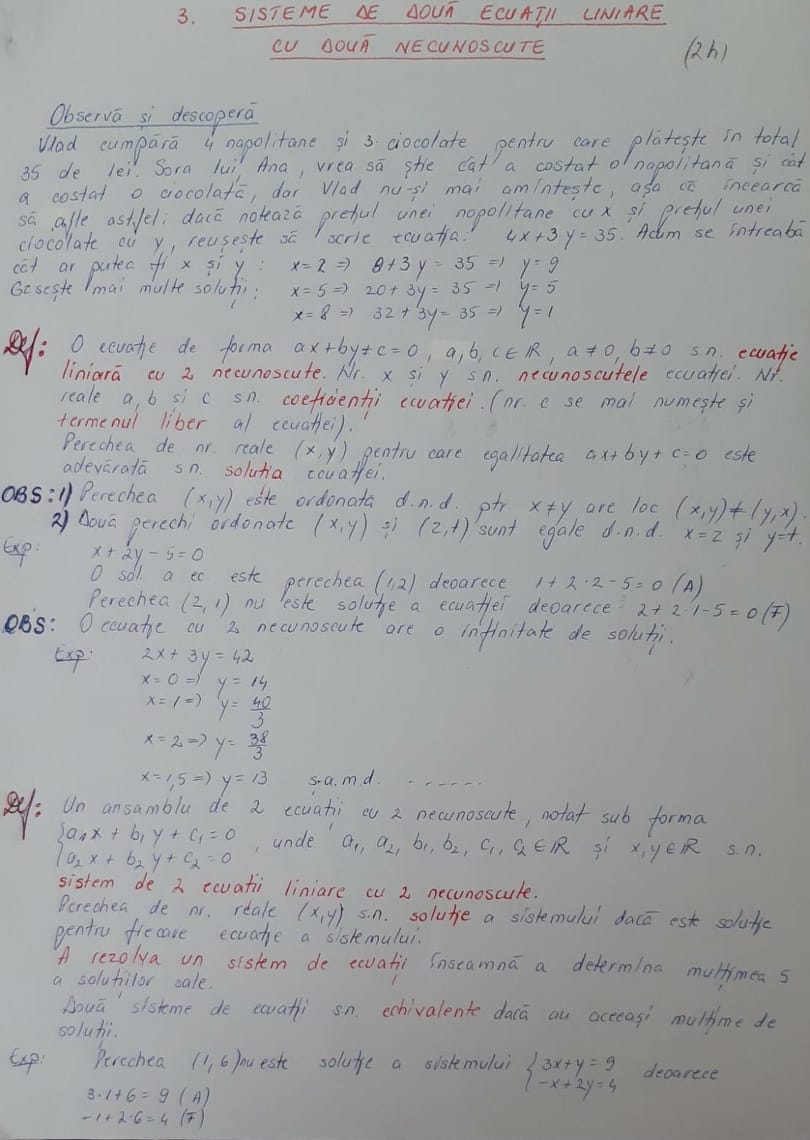 3. SISTEME DE DOUĂ ECUAȚII LINIARE
CU DOUĂ NECUNOSCUTE
(2h)
Observă și descoperă
Vlad cumpără 4 napolitane și 3 ciocolate pentru care plătește în total
35 de lei. Sora lui, Ana, vrea să știe cât a costat o napolitană și cât
a costat o ciocolată, dar Vlad nu-și mai amintește, așa că încearcă
să afle astfel: dacă notează prețul unei napolitane cu x și prețul unei
ciocolate cu y, reușește să scrie ecuația: 4x+3y=35. Acum se întreabă
cât ar putea fi x și y : x=2 => 8+3y=35 => y=9
Găsește mai multe soluții: x=5 => 20+3y=35 => y=5
x=8 => 32+3y=35 => y=1
Def: O ecuație de forma ax+by+c=0, a,b,c∈ℝ, a≠0, b≠0 s.n. ecuație
liniară cu 2 necunoscute. Nr. x și y s.n. necunoscutele ecuației. Nr.
reale a, b și c s.n. coeficienții ecuației. (nr. c se mai numește și
termenul liber al ecuației).
Perechea de nr. reale (x,y) pentru care egalitatea ax+by+c=0 este
adevărată s.n. soluția ecuației.
OBS: 1) Perechea (x,y) este ordonată d.n.d. ptr. x≠y are loc (x,y)≠(y,x).
2) Două perechi ordonate (x,y) și (z,t) sunt egale d.n.d. x=z și y=t.
Exp: x+2y-5=0
O sol. a ec. este perechea (1,2) deoarece 1+2·2-5=0 (A)
Perechea (2,1) nu este soluție a ecuației deoarece 2+2·1-5=0 (F)
OBS: O ecuație cu 2 necunoscute are o infinitate de soluții.
Exp: 2x+3y=42
x=0 => y=14
x=1 => y=40/3
x=2 => y=38/3
x=1,5 => y=13 ș.a.m.d. ......
Def: Un ansamblu de 2 ecuații cu 2 necunoscute, notat sub forma
{a₁x+b₁y+c₁=0
{a₂x+b₂y+c₂=0, unde a₁, a₂, b₁, b₂, c₁, c₂∈ℝ și x,y∈ℝ s.n.
sistem de 2 ecuații liniare cu 2 necunoscute.
Perechea de nr. reale (x,y) s.n. soluție a sistemului dacă este soluție
pentru fiecare ecuație a sistemului.
A rezolva un sistem de ecuații înseamnă a determina mulțimea S
a soluțiilor sale.
Două sisteme de ecuații s.n. echivalente dacă au aceeași mulțime de
soluții.
Exp: Perechea (1,6) nu este soluție a sistemului {3x+y=9
{-x+2y=4 deoarece
3·1+6=9 (A)
-1+2·6=4 (F)